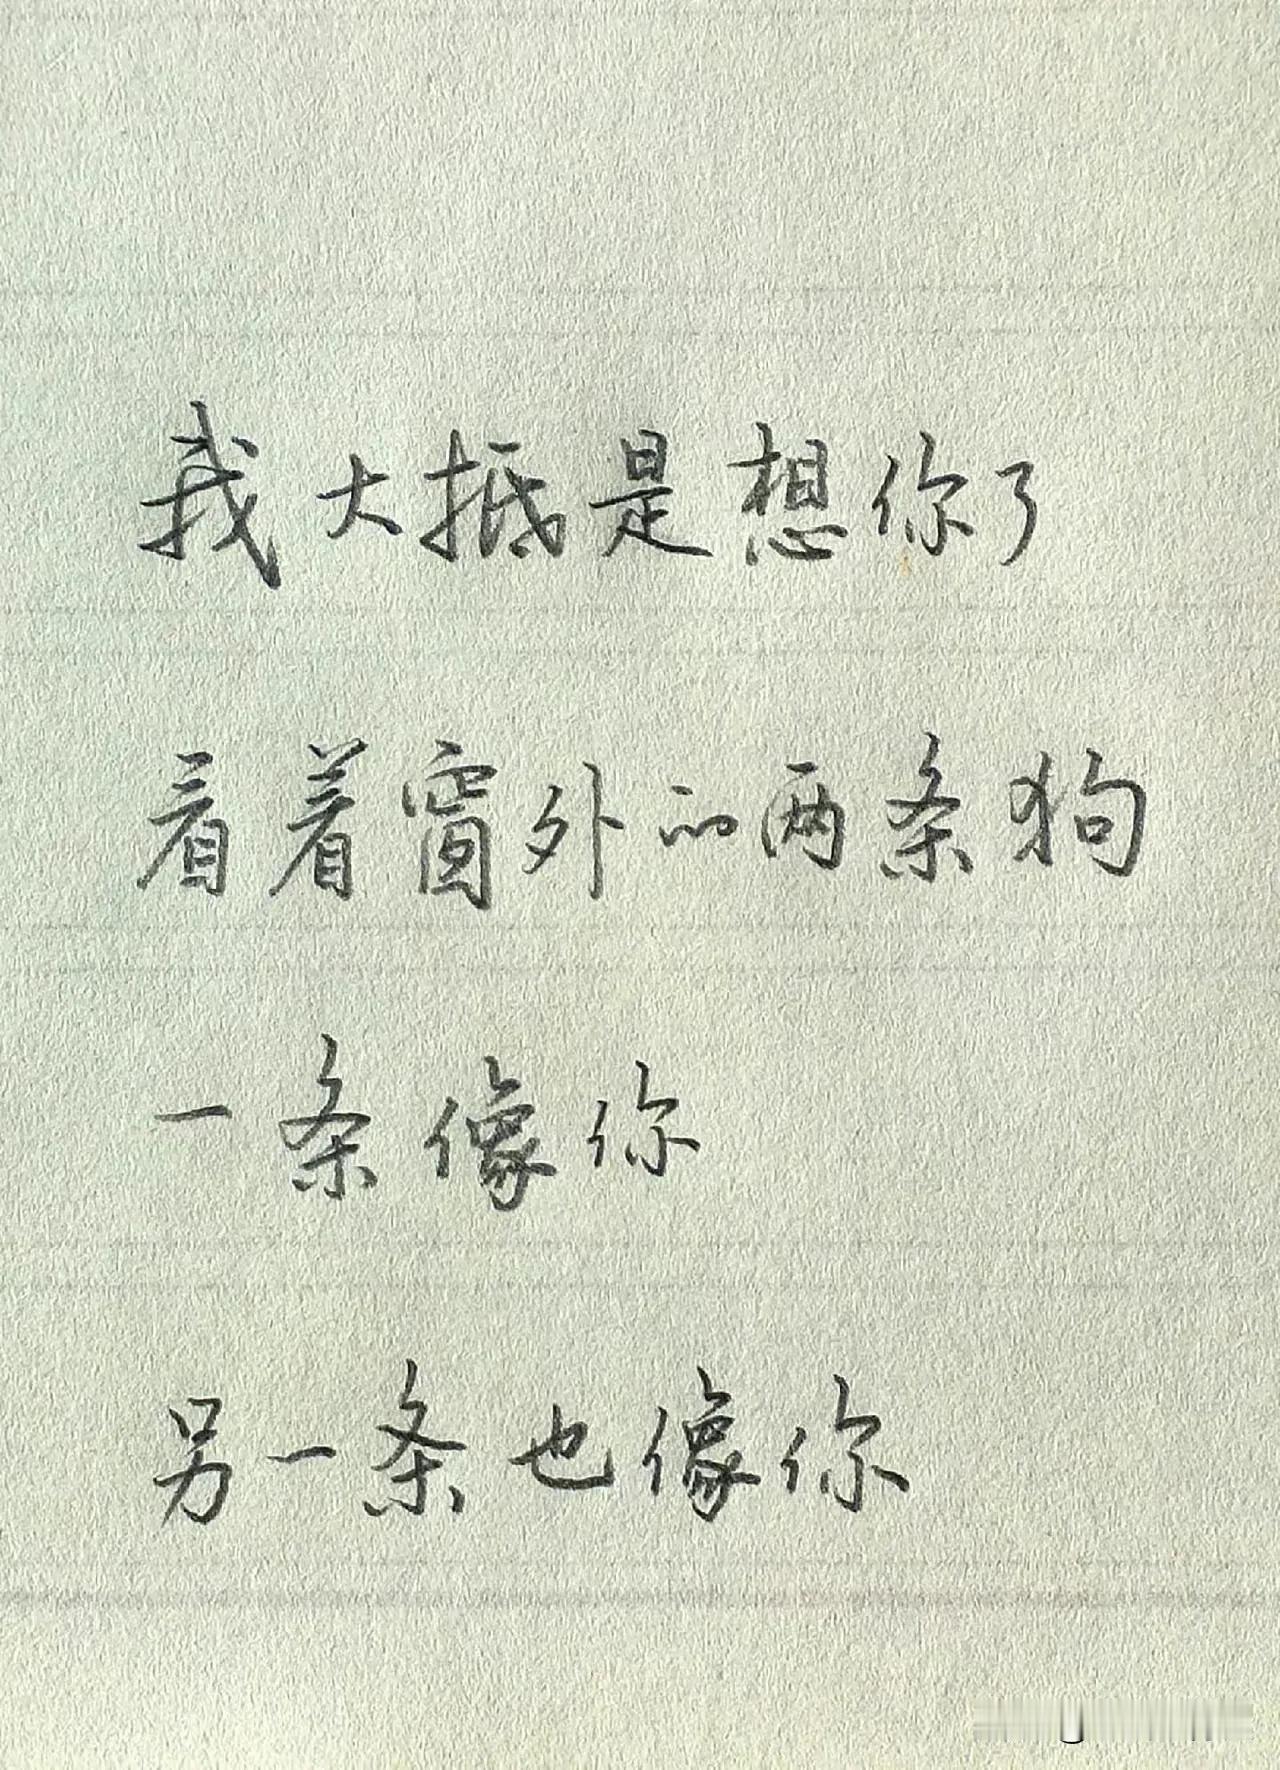 我大抵是想你了
看着窗外的两条狗
一条像你
另一条也像你